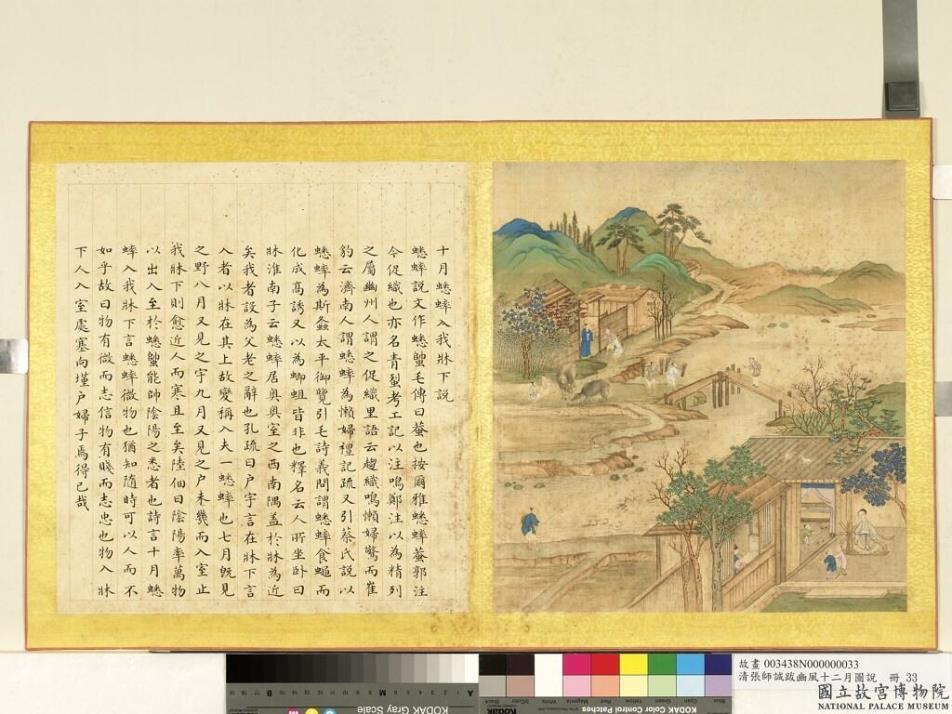 十月蟋蟀入我牀下說
蟋蟀說文作蟋蟀毛傳曰蛬也按爾雅蟋蟀蛬郭注
今促織也亦名青䖺考工記以注鳴鄭注以為精列
之屬幽州人謂之促織里語云趨織鳴懶婦驚而崔
豹云濟南人謂蟋蟀為懶婦禮記疏又引蔡氏說以
蟋蟀為斯螽太平御覽引毛詩義問謂蟋蟀食蠅而
化成高誘又以為蝍蛆皆非也釋名云人所坐卧曰
牀淮南子云蟋蟀居奧奧室之西南隅蓋於牀為近
矣我者設為父老之辭也孔疏曰戶宇言在牀下言
入者以牀在其上故變稱入夫一蟋蟀也七月既見
之野八月又見之宇九月又見之戶未幾而入室止
我牀下則愈近人而寒且至矣陸佃曰陰陽率萬物
以出入至於蟋蟀能帥陰陽之悉者也詩言十月蟋
蟀入我牀下言蟋蟀微物也猶知隨時可以人而不
如乎故曰物有微而志信物有賤而志忠也物入牀
下人入室處塞向墐戶婦子焉得已哉
KODAK Gray Scale
KODAK Color Control Patches
故畫 003438N000000033
清張師誠跋豳風十二月圖說 冊 33
國立故宮博物院
NATIONAL PALACE MUSEUM